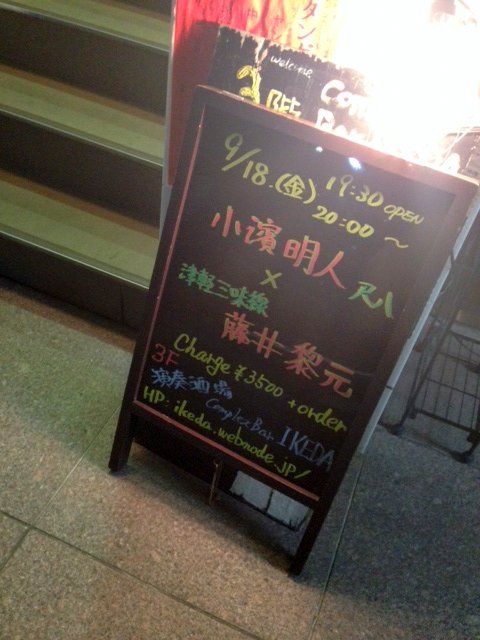 タン
welcome
2階 Com
Bar
9/18.(金) 19:30 OPEN
20:00 〜
小濱明人 尺八
×
津軽三味線
藤井黎元
Charge ¥3500 + order
3F
演奏酒場 Complex Bar IKEDA
HP: ikeda.webnode.jp/